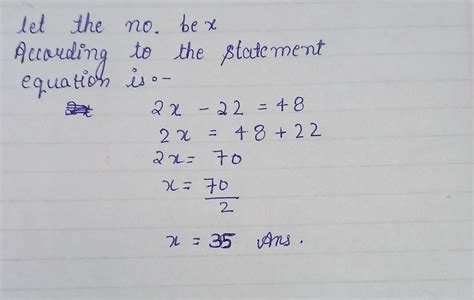 let the no. be x
According to the statement
equation is:-
2x - 22 = 48
2x = 48 + 22
2x = 70
x = 70/2
x = 35 Ans.